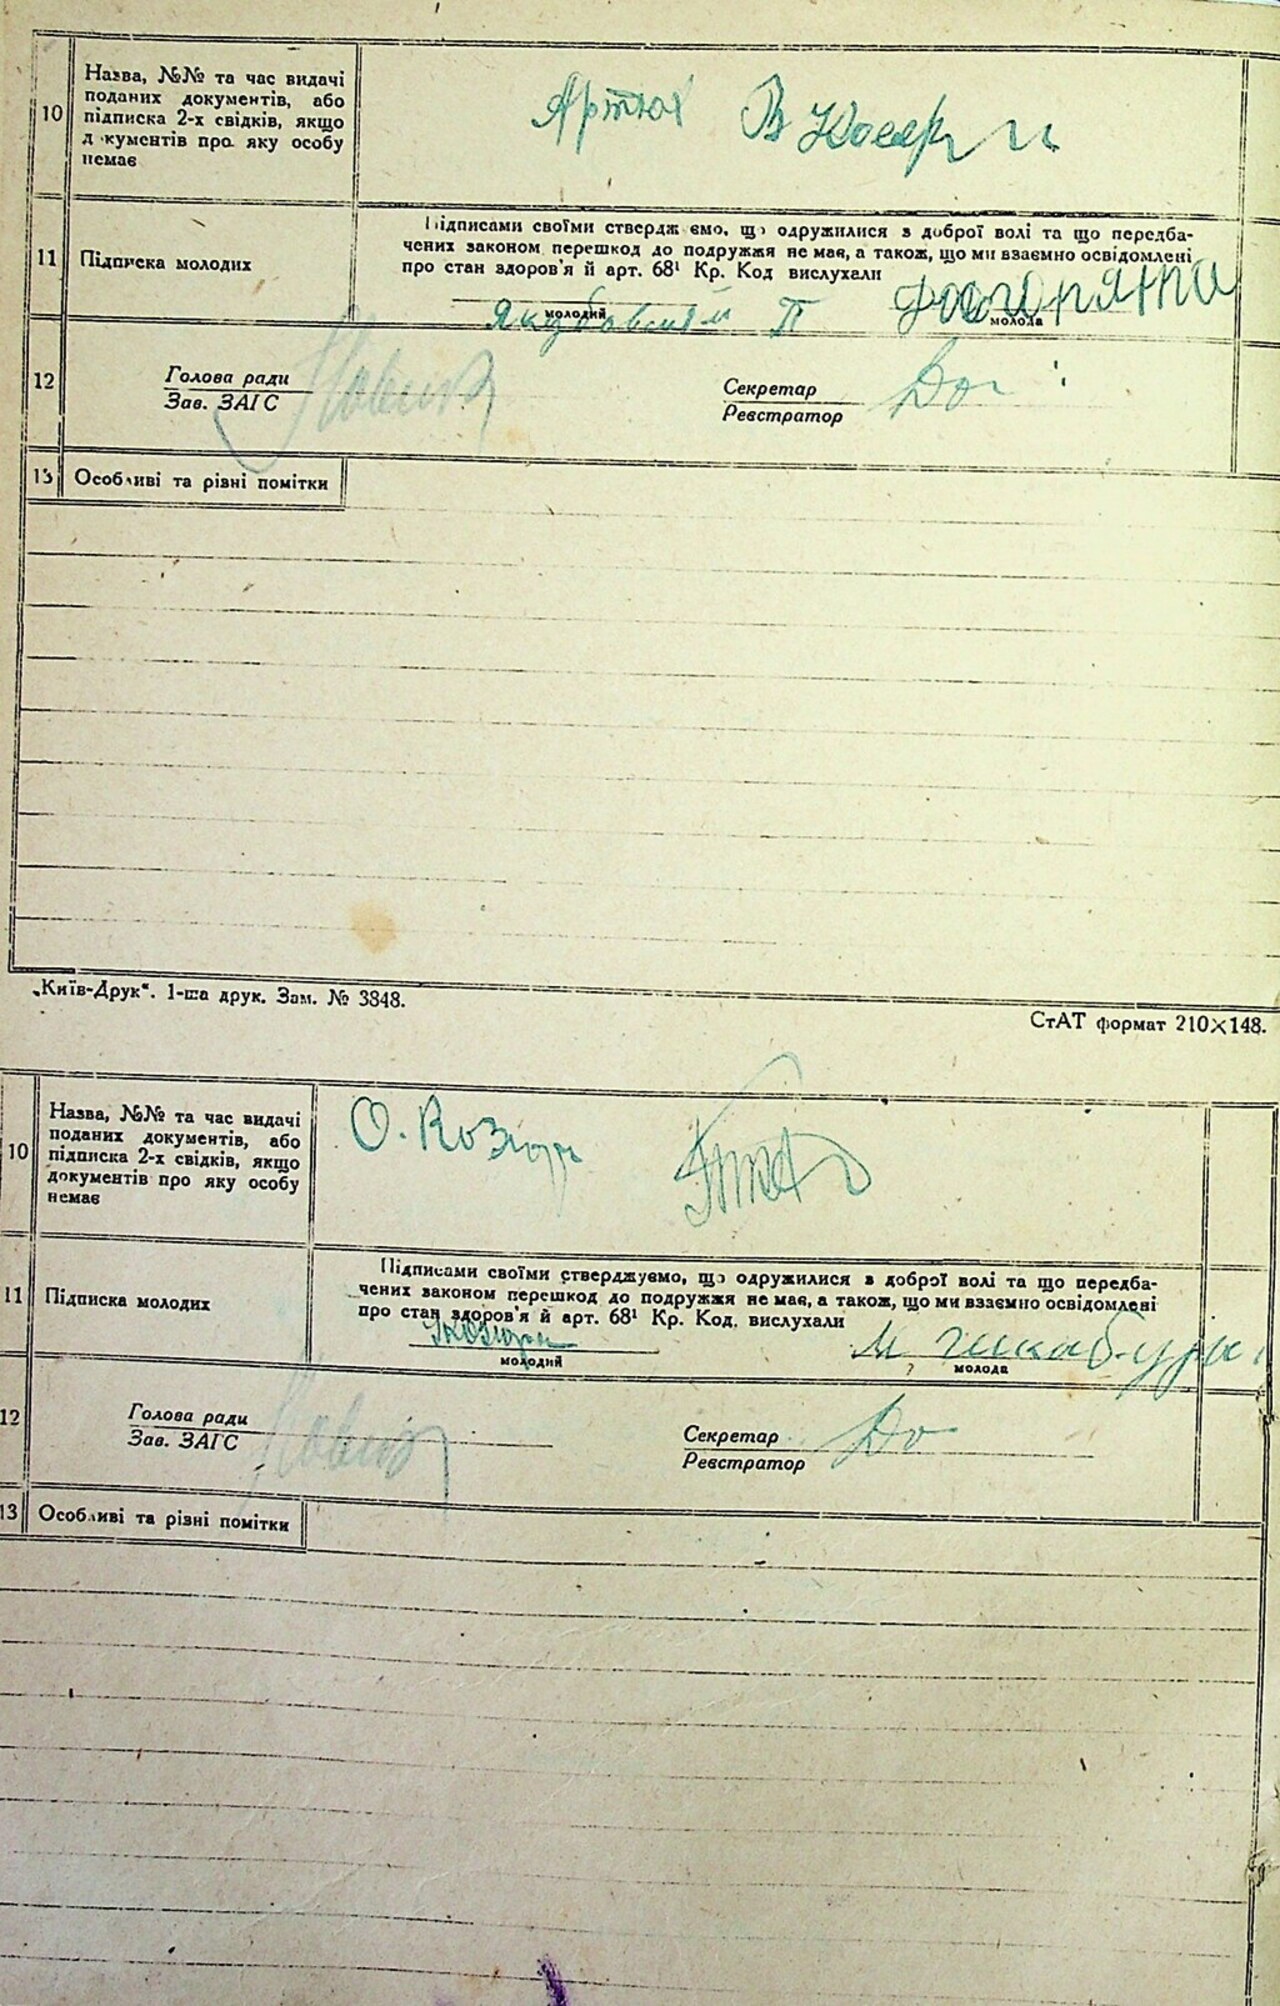 10
Назва, №№ та час видачі
поданих документів, або
підписка 2-х свідків, якщо
д кументів про яку особу
немає
Артюх В
11
Підписка молодих
Підписами своїми ствердж ємо, що одружилися з доброї волі та що передба-
чених законом перешкод до подружжя не має, а також, що ми взаємно освідомлені
про стан здоров'я й арт. 68¹ Кр. Код вислухали
молодий
молода
12
Голова ради
Зав. ЗАГС
Секретар
Реєстратор
13
Особливі та різні помітки
„Київ-Друк“. 1-ша друк. Зам. № 3848.
СтАТ формат 210×148.
10
Назва, №№ та час видачі
поданих документів, або
підписка 2-х свідків, якщо
документів про яку особу
немає
О.
11
Підписка молодих
Підписами своїми стверджуємо, що одружилися з доброї волі та що передба-
чених законом перешкод до подружжя не має, а також, що ми взаємно освідомлені
про стан здоров'я й арт. 68¹ Кр. Код. вислухали
молодий
молода
12
Голова ради
Зав. ЗАГС
Секретар
Реєстратор
13
Особливі та різні помітки